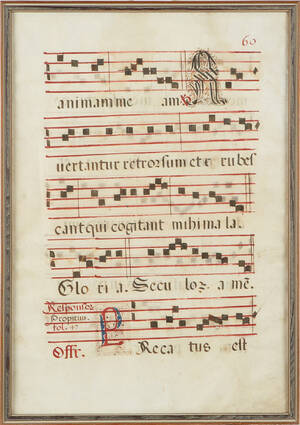 60
animam me am. A
uertantur retrorsum et e rubes
cant qui cogitant mihi mala.
Glo ri a. Secu loz. a mē.
Responsoz
Propitius.
fol. 47
Offr. P Reca tus est